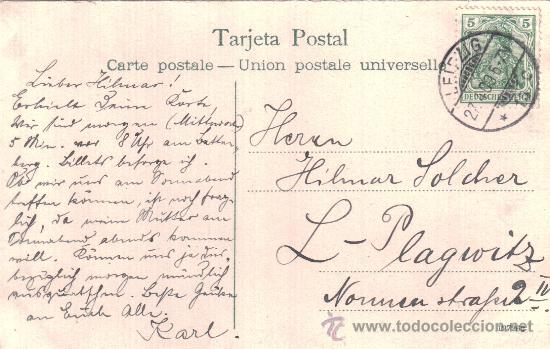 Tarjeta Postal
Carte postale — Union postale universelle
5 5
DEUTSCHES REICH
LEIPZIG
Lieber Hilmar!
Erhielt Deine Karte,
Wir sind morgen (Mittwoch)
5 Min. vor 8 Uhr am Batten-
berg. Billets besorge ich.
Ob wir uns am Sonnabend
treffen können, ist noch frag-
lich, da meine Mutter am
Sonnabend abends kommen
will. Können uns ja dies-
bezüglich morgen mündlich
ausquatschen. Beste Grüße
an Euch Alle.
Karl.
Herrn
Hilmar Solcher
L-Plagwitz
Nonnenstraße 2 IV
© www.todocoleccion.net